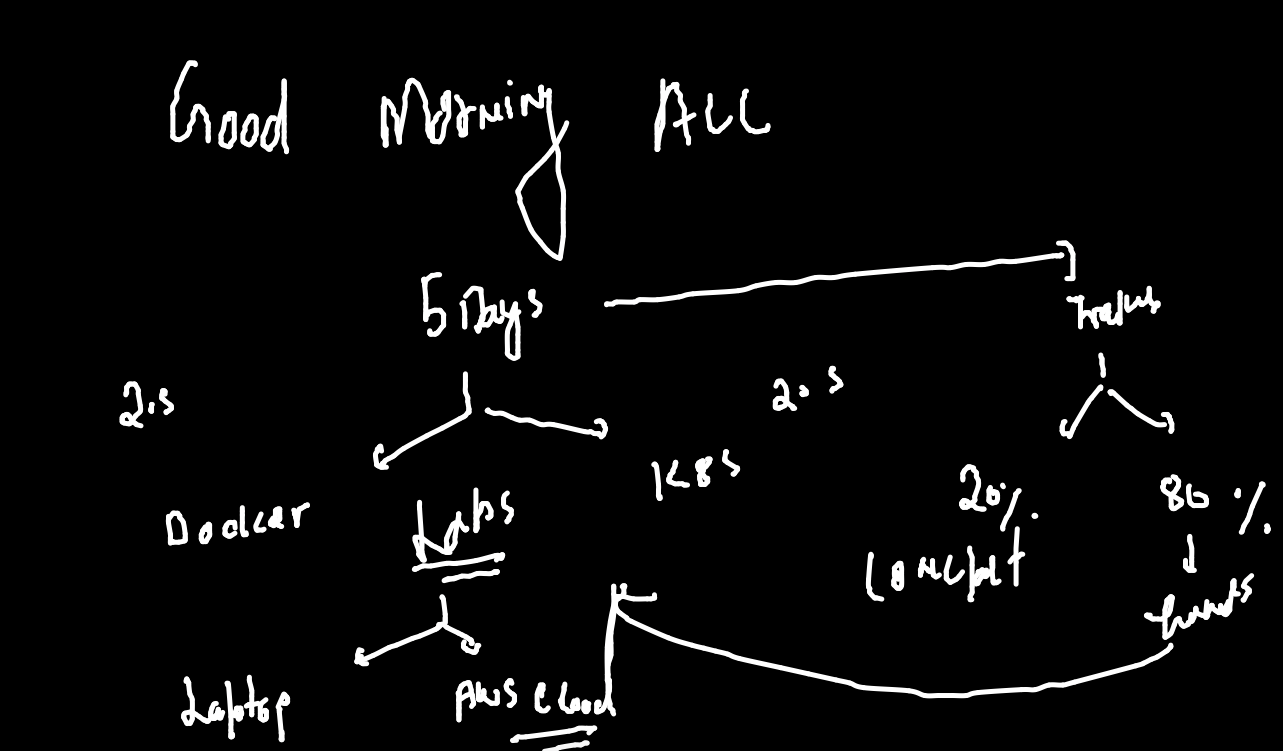 Good Morning ALL
5 Days
2.5
2.5
Docker
Labs
K8s
20%.
80 %.
Concept
hands
Laptop
AWS Cloud